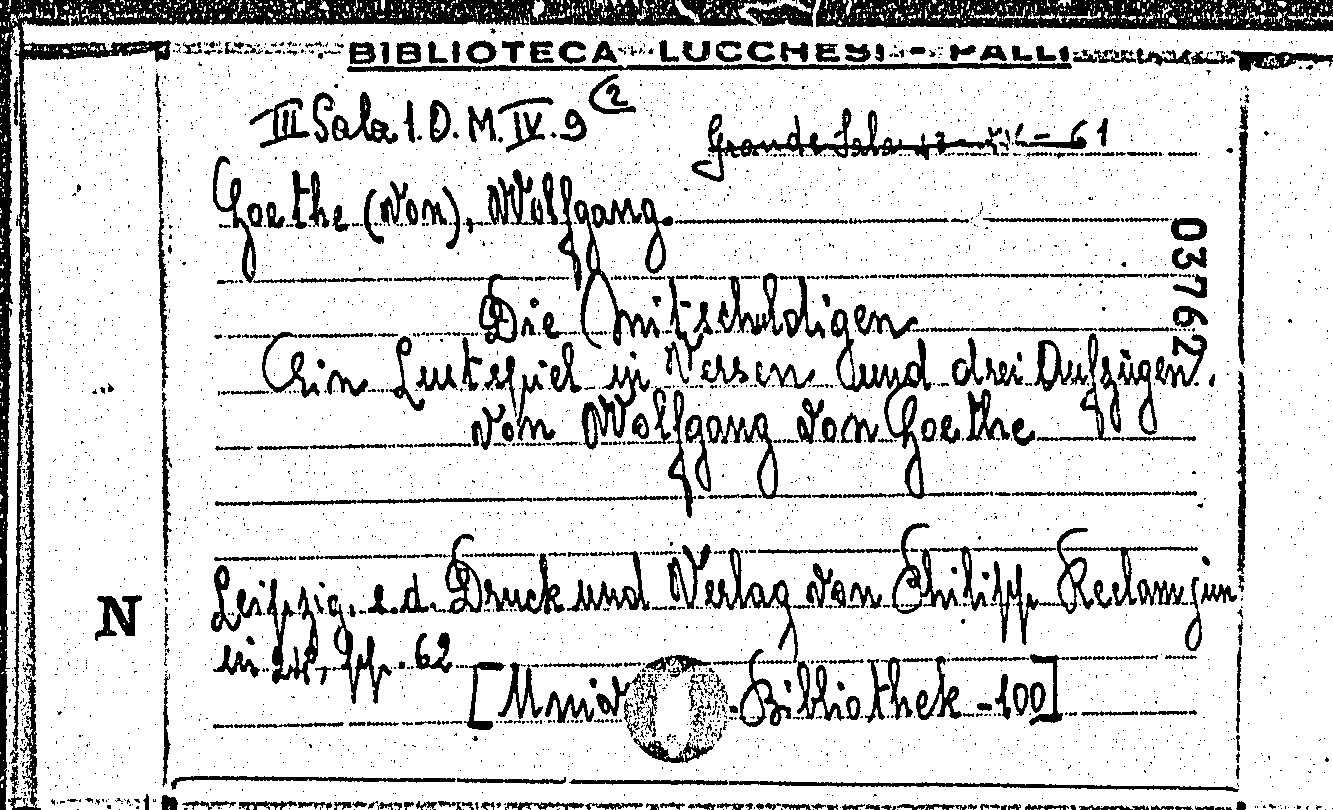 BIBLIOTECA LUCCHESI - PALLI
III Sala 1.D. M. IV. 9 (2
Grande Sala - 61
Goethe (von), Wolfgang.
03762
Die Mitschuldigen
Ein Lustspiel in Versen und drei Aufzügen.
von Wolfgang von Goethe
Leipzig. s. d. Druck und Verlag von Philipp Reclam jun
N
in 24°, pp. 62
[Univ -Bibliothek - 100]